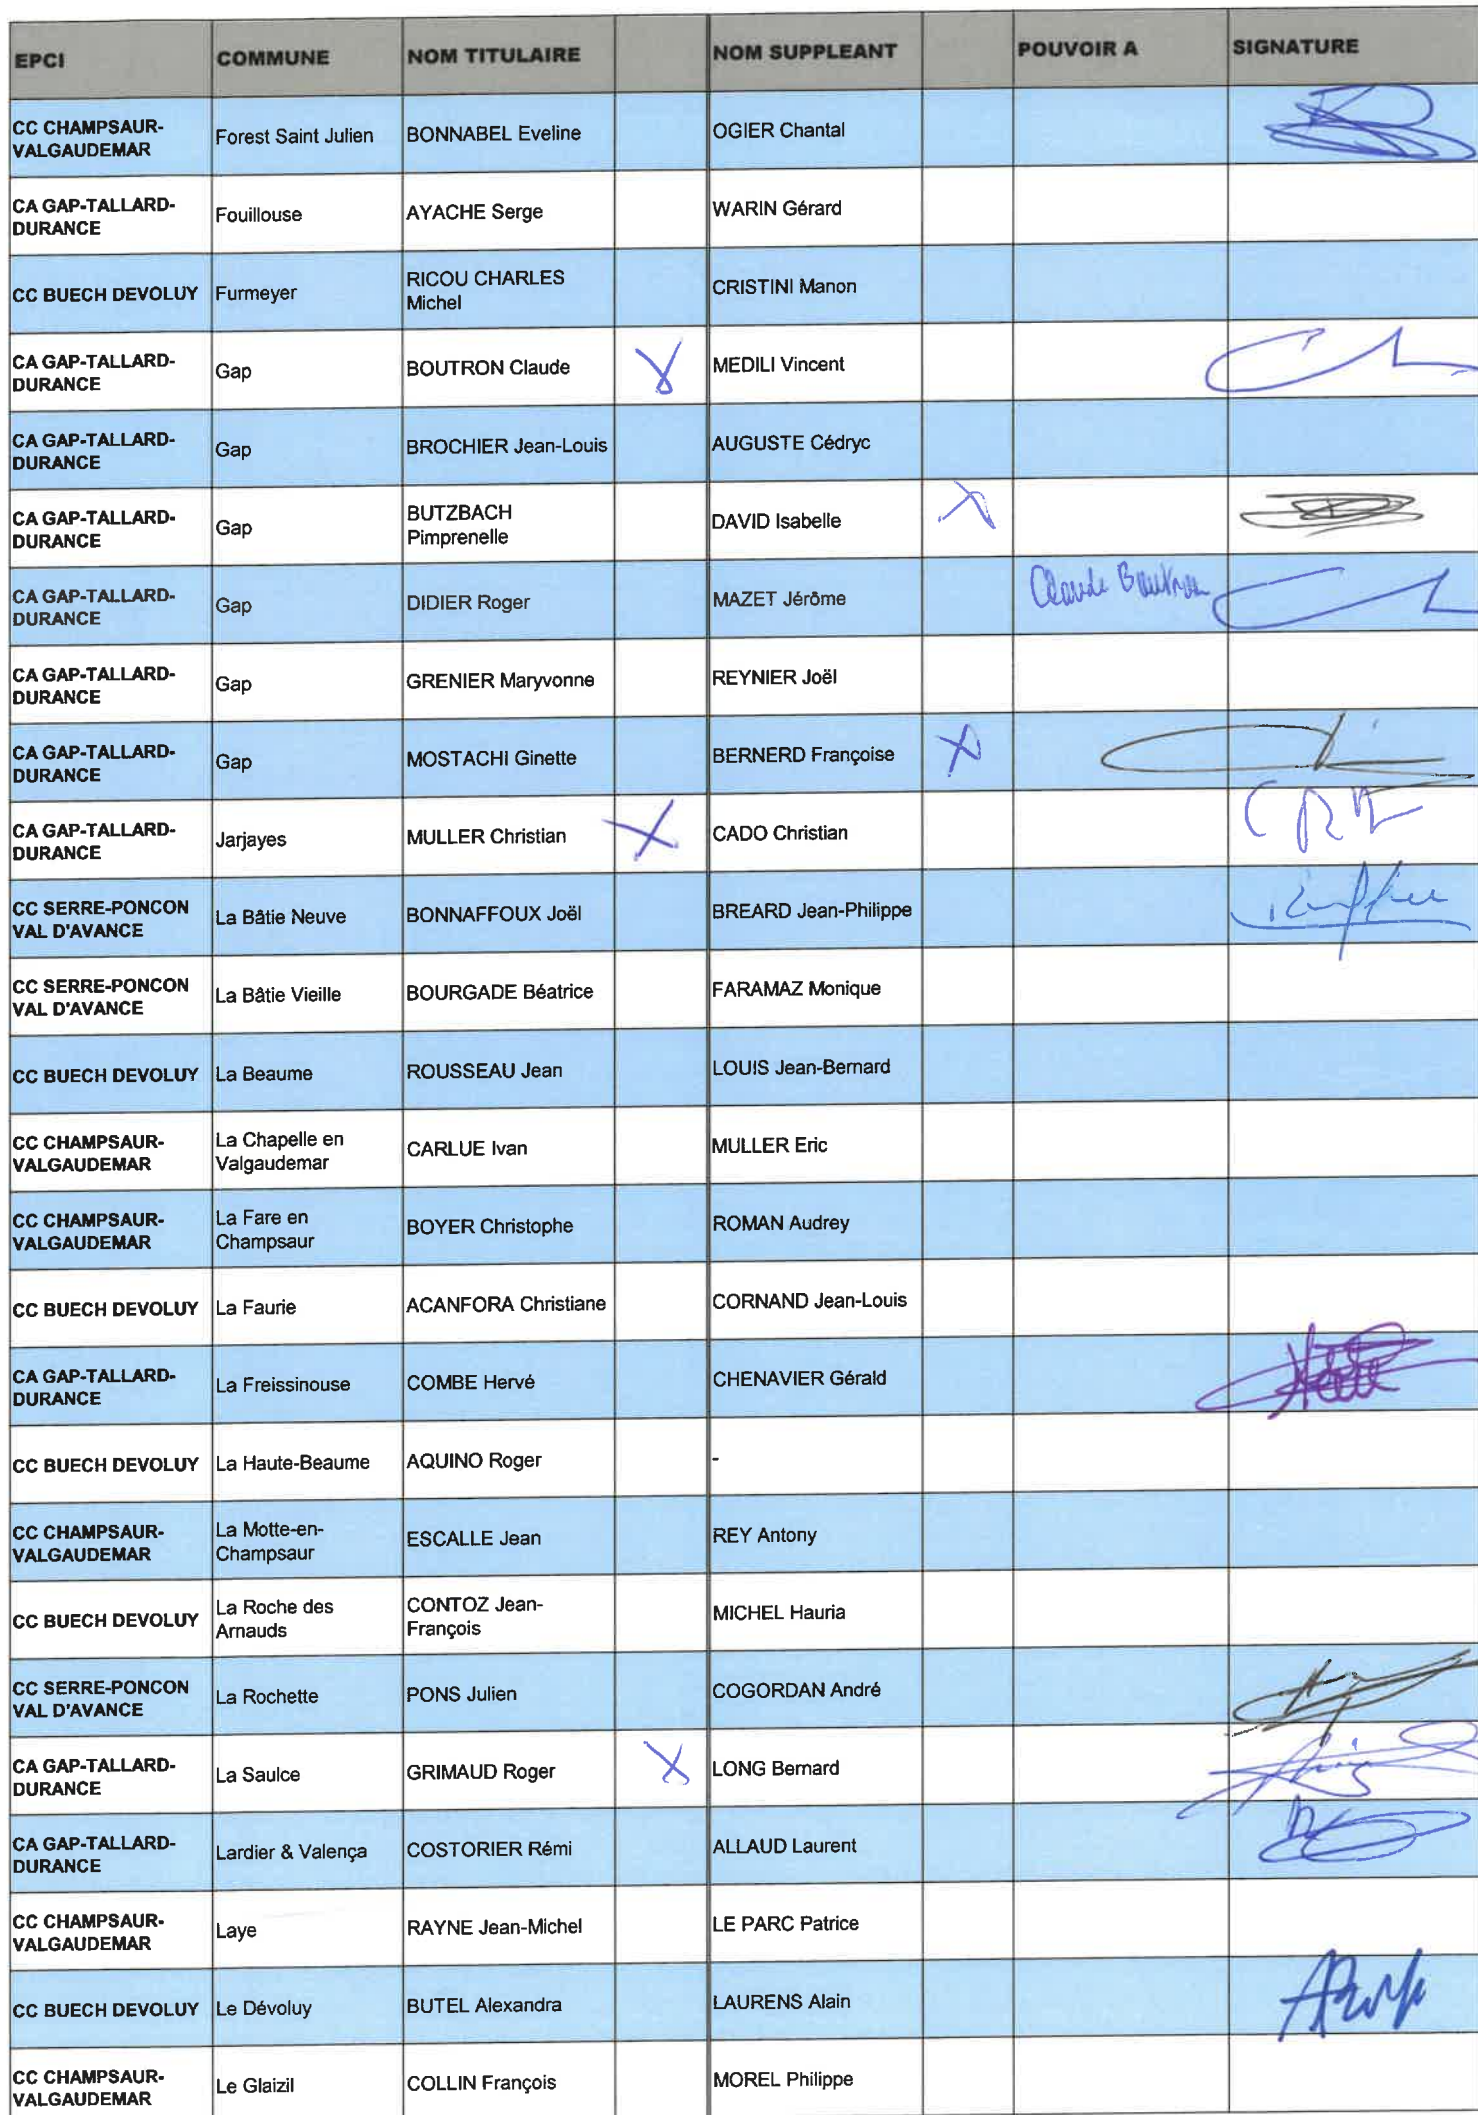 EPCI COMMUNE NOM TITULAIRE NOM SUPPLEANT POUVOIR A SIGNATURE
CC CHAMPSAUR-
VALGAUDEMAR Forest Saint Julien BONNABEL Eveline OGIER Chantal
CA GAP-TALLARD-
DURANCE Fouillouse AYACHE Serge WARIN Gérard
CC BUECH DEVOLUY Furmeyer RICOU CHARLES
Michel CRISTINI Manon
CA GAP-TALLARD-
DURANCE Gap BOUTRON Claude X MEDILI Vincent
CA GAP-TALLARD-
DURANCE Gap BROCHIER Jean-Louis AUGUSTE Cédryc
CA GAP-TALLARD-
DURANCE Gap BUTZBACH
Pimprenelle DAVID Isabelle X
CA GAP-TALLARD-
DURANCE Gap DIDIER Roger MAZET Jérôme Claude Boutron
CA GAP-TALLARD-
DURANCE Gap GRENIER Maryvonne REYNIER Joël
CA GAP-TALLARD-
DURANCE Gap MOSTACHI Ginette BERNERD Françoise X
CA GAP-TALLARD-
DURANCE Jarjayes MULLER Christian X CADO Christian
CC SERRE-PONCON
VAL D'AVANCE La Bâtie Neuve BONNAFFOUX Joël BREARD Jean-Philippe
CC SERRE-PONCON
VAL D'AVANCE La Bâtie Vieille BOURGADE Béatrice FARAMAZ Monique
CC BUECH DEVOLUY La Beaume ROUSSEAU Jean LOUIS Jean-Bernard
CC CHAMPSAUR-
VALGAUDEMAR La Chapelle en
Valgaudemar CARLUE Ivan MULLER Eric
CC CHAMPSAUR-
VALGAUDEMAR La Fare en
Champsaur BOYER Christophe ROMAN Audrey
CC BUECH DEVOLUY La Faurie ACANFORA Christiane CORNAND Jean-Louis
CA GAP-TALLARD-
DURANCE La Freissinouse COMBE Hervé CHENAVIER Gérald
CC BUECH DEVOLUY La Haute-Beaume AQUINO Roger -
CC CHAMPSAUR-
VALGAUDEMAR La Motte-en-
Champsaur ESCALLE Jean REY Antony
CC BUECH DEVOLUY La Roche des
Arnauds CONTOZ Jean-
François MICHEL Hauria
CC SERRE-PONCON
VAL D'AVANCE La Rochette PONS Julien COGORDAN André
CA GAP-TALLARD-
DURANCE La Saulce GRIMAUD Roger X LONG Bernard
CA GAP-TALLARD-
DURANCE Lardier & Valença COSTORIER Rémi ALLAUD Laurent
CC CHAMPSAUR-
VALGAUDEMAR Laye RAYNE Jean-Michel LE PARC Patrice
CC BUECH DEVOLUY Le Dévoluy BUTEL Alexandra LAURENS Alain
CC CHAMPSAUR-
VALGAUDEMAR Le Glaizil COLLIN François MOREL Philippe